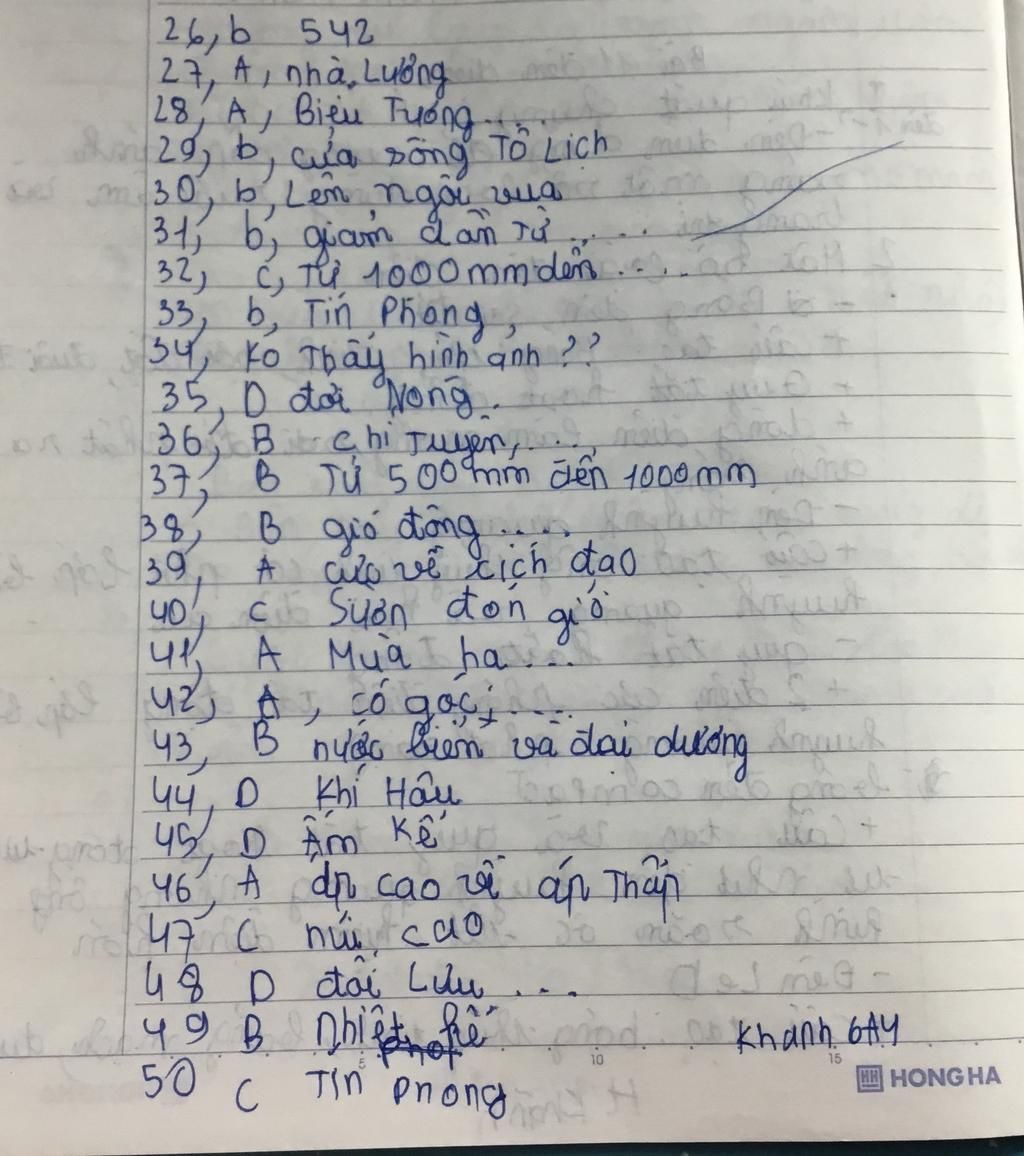 26, b 542
27, A, nhà Lương
28, A, Biệu Tướng ....
29, b, cửa sông Tô Lịch
30, b, Lên ngôi vua
31, b, giảm dần từ .....
32, C, Từ 1000mm đến ....
33, b, Tín Phong,
34, Ko Thấy hình ảnh ??
35, D đới Nóng.
36, B chí Tuyến, ...
37, B Từ 500mm đến 1000mm
38, B gió đông ....
39, A cực về xích đạo
40, C Sườn đón gió
41, A Mùa hạ ...
42, A, có gốc, ....
43, B nước biển và đại dương
44, D Khí Hậu
45, D Ẩm Kế
46, A áp cao về áp Thấp
47 C núi cao
48 D đối Lưu ...
49 B Nhiệt kế
Khanh 6A4
5 10 15
50 C Tín phong
HH HONG HA